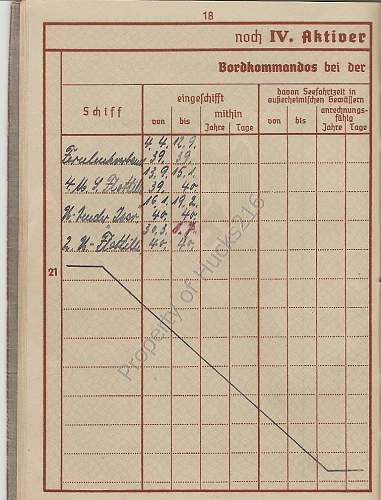 18
noch IV. Aktiver
Bordkommandos bei der
Schiff
eingeschifft
von
bis
mithin
Jahre
Tage
davon Seefahrtzeit in
außerheimischen Gewässern
von
bis
anrechnungs-
fähig
Jahre
Tage
4. 4. 12. 9.
39. 39.
13. 9. 15. 1.
Flottille 39. 40.
16. 1. 19. 2.
40. 40.
2. U-Flottille 40. 40.
21
Property of Hucks216